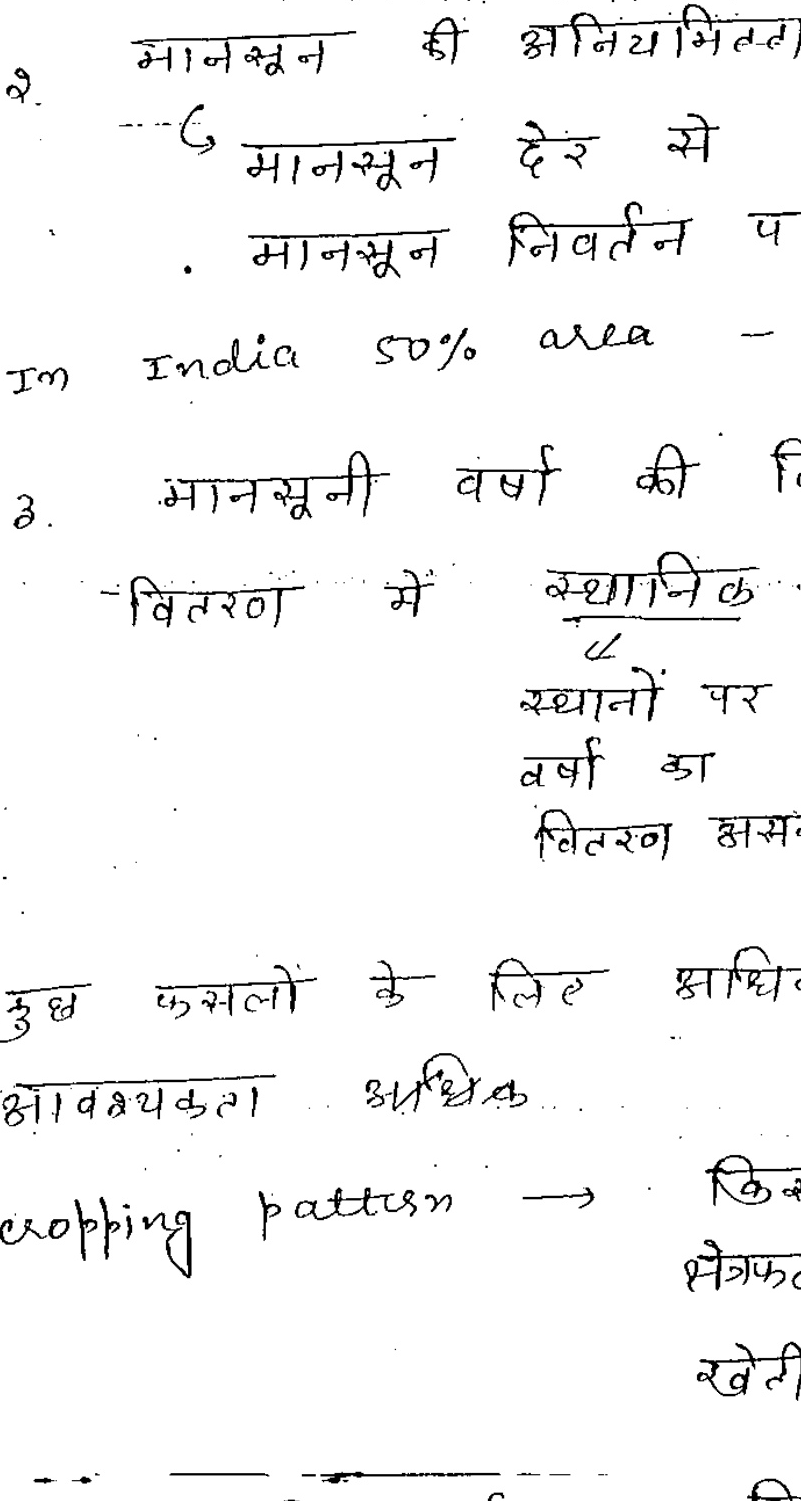 २. मानसून की अनियमितता
मानसून देर से
. मानसून निवर्तन प
In India 50% area -
३. मानसूनी वर्षा की वि
वितरण में स्थानिक
स्थानों पर
वर्षा का
वितरण असम
कुछ फसलों के लिए अधिक
आवश्यकता अधिक
cropping pattern → किस
क्षेत्रफल
खेती